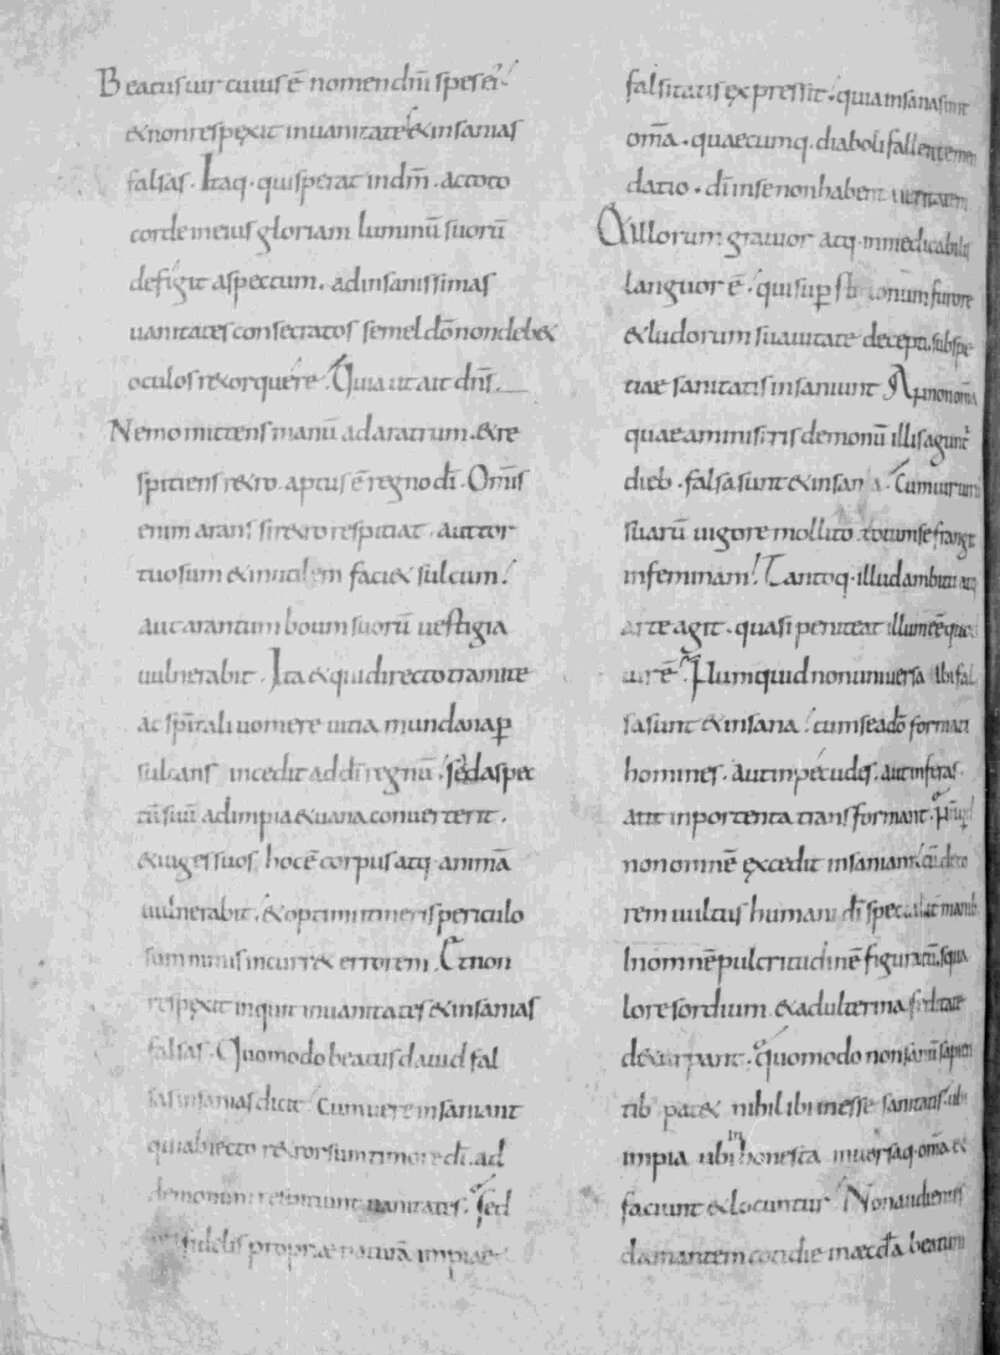 Beatus uir cuius ē nomen dn̄i spes ei
& non respęxit in uanitate & insanias
falsas. Itaq. qui sperat in dn̄m. ac toto
corde in eius gloriam luminū suorū
defigit aspectum. ad insanissimas
uanitates consecratos semel dō non deb&
oculos r&orquere. Quia ut ait dn̄s.
Nemo mittens manū ad aratrum. & re
spitiens r&ro. aptus ē regno dī. Om̄is
enim arans si r&ro respitiat. aut tor
tuosum & inutilem faci& sulcum.
aut arantum boum suorū uestigia
uulnerabit. Ita & qui directo tramite
ac sp̄itali uomere uitia mundana ꝑ
sulcans incedit ad dī regnū. sed aspec
tū suū ad impia & uana conuerterit.
& iuges suos hoc ē corpus atq. animā
uulnerabit. & optimi itineris periculo
summus incurr& errorem. Et non
respęxit inquit in uanitates & insanias
falsas. Quomodo beatus dauid fal
sas insanias dicit Cum uere insaniant
qui abiecto r&rorsum timore dī. ad
demonum uanitates. Sed
fidelis propriae naturā impiae
falsitatis expressit. quia insana sunt
om̄a. quaecumq. diaboli fallente men
datio. dī in se non habent ueritatem
& illorum grauior atq. inmedicabilis
languor ē. qui suꝑ furore
& ludorum suauitate decepti. sub spe
tiae sanitatis insaniunt An non om̄a
quae a ministris demonū illis agunt
dieb. falsa sunt & insana. Cum uirum
suarū uigore mollito. totum se frangit
in feminam. Tantoq. illud ambitu atq
arte agit. quasi peniteat illum ēē que
uir ē. Numquid non uniuersa ibi fal
sa sunt & insana. cum se a dō formati
homines. aut in pecudes. aut in feras.
aut in portenta transformant.
non omnē excedit insaniam. cū deco
rem uultus humani dī specialit manib
In omnē pulcritudinē figuratū. squa
lore sordium & adulterina feditate
d&urpant. Quomodo non sanū sapien
tib. pat& nihil ibi inesse sanitatis. ubi
impia ubi inhonesta inuersaq. om̄a &
faciunt & locuntur Non audiemus
clamantem cotidie in aecclā beatum